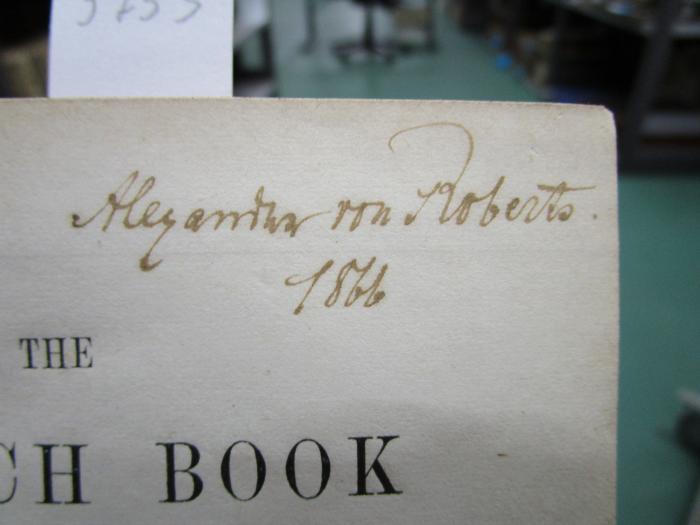 Alexander von Roberts.
1866
THE
CH BOOK